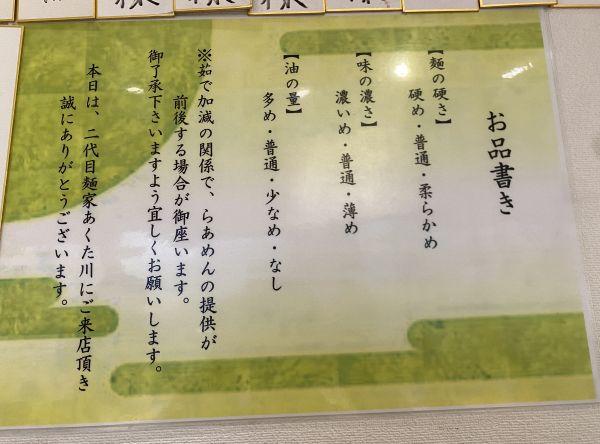 お品書き
【麺の硬さ】
硬め・普通・柔らかめ
【味の濃さ】
濃いめ・普通・薄め
【油の量】
多め・普通・少なめ・なし
※茹で加減の関係で、らあめんの提供が
前後する場合が御座います。
御了承下さいますよう宜しくお願いします。
本日は、二代目麺家あくた川にご来店頂き
誠にありがとうございます。